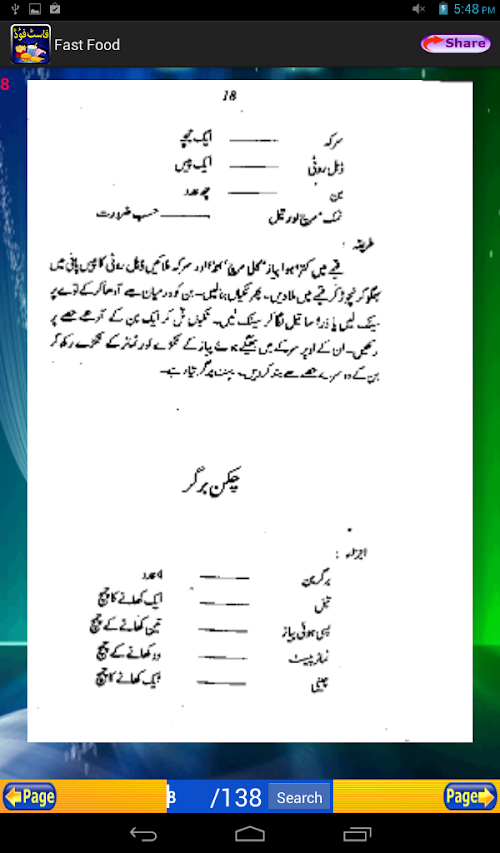 5:48 PM
فاسٹ فوڈ
Fast Food
Share
8
18
سرکہ ——— ایک چمچہ
ڈبل روٹی ——— ایک پیس
بن ——— چھ عدد
نمک، مرچ اور تیل ——— حسب ضرورت
طریقہ :
قیمے میں کترا ہوا پیاز، کالی مرچ، انڈا اور سرکہ ملائیں ڈبل روٹی کا پیس پانی میں
بھگو کر نچوڑ کر قیمے میں ملا دیں۔ پھر ٹکیاں بنا لیں۔ بن کو درمیان سے آدھا کر کے توے پر
سینک لیں یا ذرا سا تیل لگا کر سینک لیں۔ ٹکیاں تل کر ایک بن کے آدھے حصے پر
رکھیں۔ ان کے اوپر سرکے میں بھیگے ہوئے پیاز کے ٹکڑے اور ٹماٹر کے ٹکڑے رکھ کر
بن کے دوسرے حصے سے بند کر دیں۔ برگر تیار ہے۔
چکن برگر
اجزاء :
برگر بن ——— 4 عدد
تیل ——— ایک کھانے کا چمچ
پسی ہوئی پیاز ——— تین کھانے کے چمچ
ٹماٹر پیسٹ ——— دو کھانے کے چمچ
چینی ——— ایک کھانے کا چمچ
Page
8
/138
Search
Page